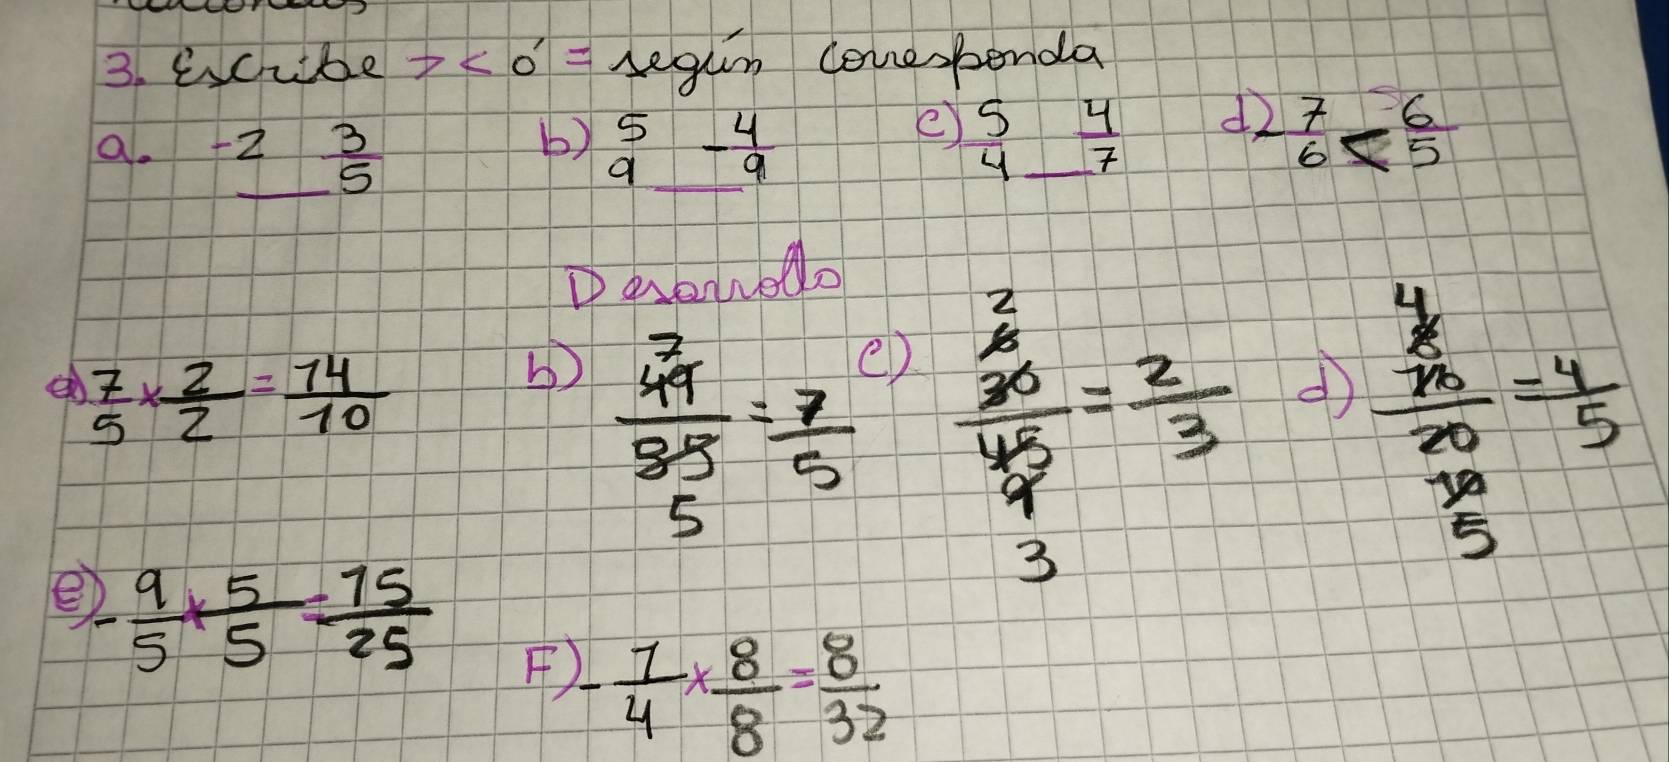 3. Escribe > < ó = según corresponda
a. -2 __ 3/5 b) 5/9 __ -4/9 c) 5/4 __ 4/7 d) -7/6 < -6/5
Desarrollo
a) 7/5 x 2/2 = 14/10 b) 7 49/35 5 = 7/5 c) 2 6 30/45 9 3 = 2/3 d) 4 8 16/20 10 5 = 4/5
e) -9/5 x 5/5 = 15/25
F) -1/4 x 8/8 = 8/32